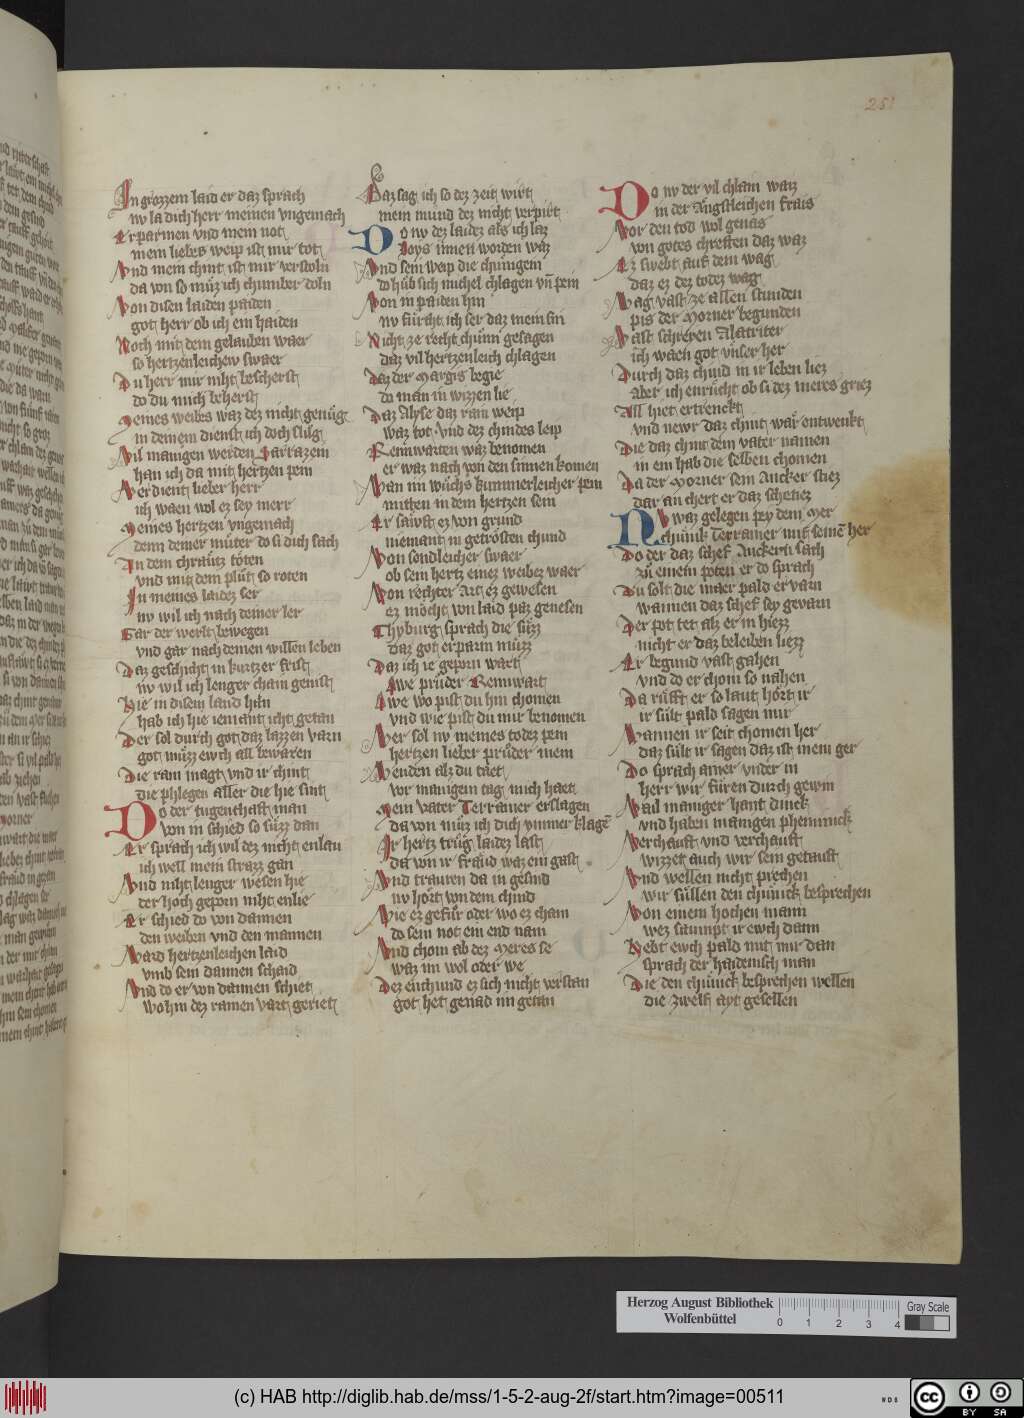 251
In grozzem laid er daz sprach
nv la dich herr meinen vngemach
Erparmen vnd mein not
mein liebes weip ist mir tot
Vnd mein chint ist mir verstoln
da von so müz ich chumber doln
Von disen laiden paiden
got herr ob ich ein haiden
Noch mit dem gelauben waer
so hertzenleichew swaer
Du herr mir niht beschertst
do du mich bekertst
Meines weibes waz dez nicht genüg
in deinem dienst ich doch slüg
Vil manigen werden Sarrazein
han ich da mit hertzen pein
Verdient lieber herr
ich waen wol ez sey merr
Meines hertzen vngemach
denn deiner müter do si dich sach
An dem chraütz töten
vnd mit dem plüt so roten
In meines laidez ser
nv wil ich nach deiner ler
Gar der werlt bewegen
vnd gar nach deinen willen leben
Daz geschicht in kurtzer frist
nv wil ich lenger chain genist
Hie in disem land han
hab ich hie iemant icht getan
Der sol durch got daz lazzen varn
got müzz ewch all bewaren
Die rain magt vnd ir chint
die phlegen aller die hie sint
Do der tugenthaft man
Von in schied so süzz dan
Er sprach ich wil dez nicht enlan
ich well mein strazz gan
Vnd niht lenger wesen hie
der hoch geporn niht enlie
Er schied do von dannen
den weiben vnd den mannen
Ward hertzenleichen laid
vmb sein dannen schaid
Vnd do er von dannen schiet
wohin dez ramen vart geriet
Daz sag ich so dez zeit wirt
mein mund dez nicht verpirt
Do nv dez laidez als ich laz
Joys innen worden waz
Vnd sein weip die chünigein
do hüb sich michel chlagen vn pein
Von in paiden hin
nv fürcht ich ser daz mein sin
Nicht ze recht chünn gesagen
daz vil hertzenleich chlagen
Daz der Margis begie
do man in wizzen lie
Daz Alyse daz rain weip
waz tot vnd dez chindes leip
Rennwarten waz benomen
er waz nach von den sinnen komen
Man im wüchs kummerleicher pein
mitten in dem hertzen sein
Er saivfst ez von grund
niemant in getrösten chund
Von sendleicher swaer
ob sein hertz eines weibez waer
Von rechter art ez gewesen
ez möcht von laid paz genesen
Thyburg sprach die süzz
daz got erparm müzz
Daz ich ie geporn wart
Awe prüder Rennwart
Awe wo pist du hin chomen
vnd wie pist du mir benomen
Wer sol nv meines todez pein
hertzen lieber prüder mein
Wenden alz du taet
vor manigem tag mich haet
Mein vater Terramer erslagen
da von müz ich dich ymmer klagen
Ir hertz trüg laidez last
da von ir fraüd waz ein gast
Vnd trauren da in gesind
nv hört von dem chind
Wie ez gefür oder wo ez cham
do sein not ein end nam
Vnd chom ab dez Meres se
waz im wol oder we
Dez enchund ez sich nicht verstan
got het genad im getan
Do nv der vil chlain waiz
in der Angstleichen frais
Vor den tod wol genas
von gotes chreften daz waz
Ez swebt auf dem wag
daz ez dez todez wag
Wag vast ze allen stunden
pis der Morner begunden
Vast schreyen Alatriter
ich waen got vnser her
Durch daz chind in ir leben liez
Aber ich enrücht ob si dez meres griez
All hiet ertrenckt
vnd newr daz chint waer entwenkt
Die daz chint dem vater namen
in ein hab die selben chomen
Da der Morner sein Ancker stiez
dar an chert er daz schefiez
Nv waz gelegen pey dem Mer
chünik Terramer mit seine her
Do der daz schef Anckern sach
zü einem poten er do sprach
Du solt die maer pald ervarn
wannen daz schef sey gevarn
Der pot tet alz er in hiezz
nicht er daz beleiben liezz
Er begund vast gahen
vnd do er chom so nahen
Da rüfft er so laut hört ir
ir sült pald sagen mir
Wannen ir seit chomen her
daz sült ir sagen daz ist mein ger
Do sprach ainer vnder in
herr wir füren durch gewin
Vail maniger hant dinck
vnd haben manigen phenninck
Verchauft vnd verchauft
wizzet auch wir sein getauft
Vnd wellen nicht prechen
wir süllen den chünick besprechen
Von einem hochen mann
wez saumpt ir ewch dann
Hebt ewch pald mit mir dan
sprach der haidenisch man
Die den chünick besprechen wellen
die zwelf ayt gesellen
Herzog August Bibliothek
Wolfenbüttel
0 1 2 3 4
Gray Scale
(c) HAB http://diglib.hab.de/mss/1-5-2-aug-2f/start.htm?image=00511
WDB
cc BY SA